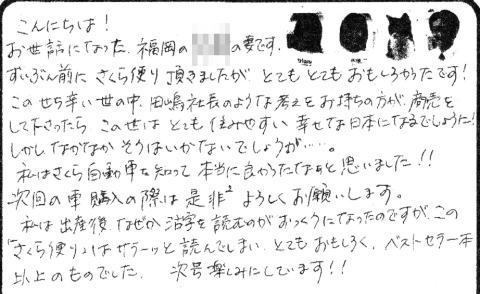 こんにちは!
お世話になった、福岡の の妻です。
ずいぶん前に さくら便り 頂きましたが とてもとても おもしろかったです!
このせち辛い世の中、田嶋社長のような考えをお持ちの方が、商売を
して下さったら この世は とても 住みやすい 幸せな日本になるでしょうに!
しかし なかなか そうはいかないでしょうが……。
私はさくら自動車を知って 本当に良かったなぁと思いました!!
次回の車購入の際は是非² よろしくお願いします。
私は 出産後、なぜか 活字を読むのが おっくうになったのですが、この
「さくら便り」は サラーッと 読んでしまい、とてもおもしろく、ベストセラー本
以上のものでした。 次号楽しみにしています!!